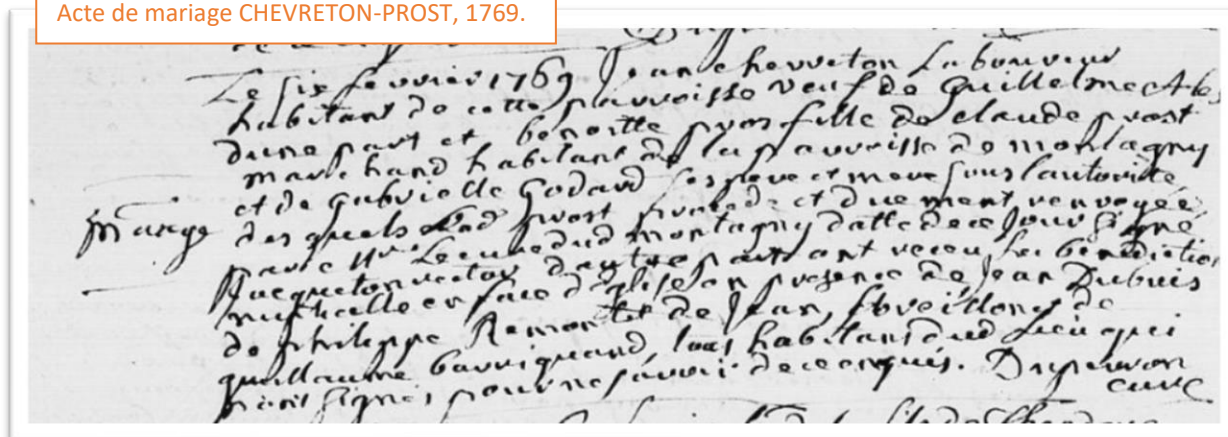 Acte de mariage CHEVRETON-PROST, 1769.
Le six fevrier 1769 Jean chevreton Laboureur
habitant de cette parroisse veuf de Guillelme
dune part et benoitte pros fille de claude prost
marchand habitant de la parroisse de montagny
et de gabrielle Godard ses pere et mere sous lautorité
mariage
des quels lad prost procede et duement renvoyée
par le Mr Le curé dud montagny datte de ce jour signé
dautre part ont receu la benediction
nuptialle en face deglise en presence de Jean Dubuis
de philippe Ramon et de Jean de
guillaume barriquand, tous habitans dud Lieu qui
nont signes pour ne savoir de ce enquis. Duperron
curé